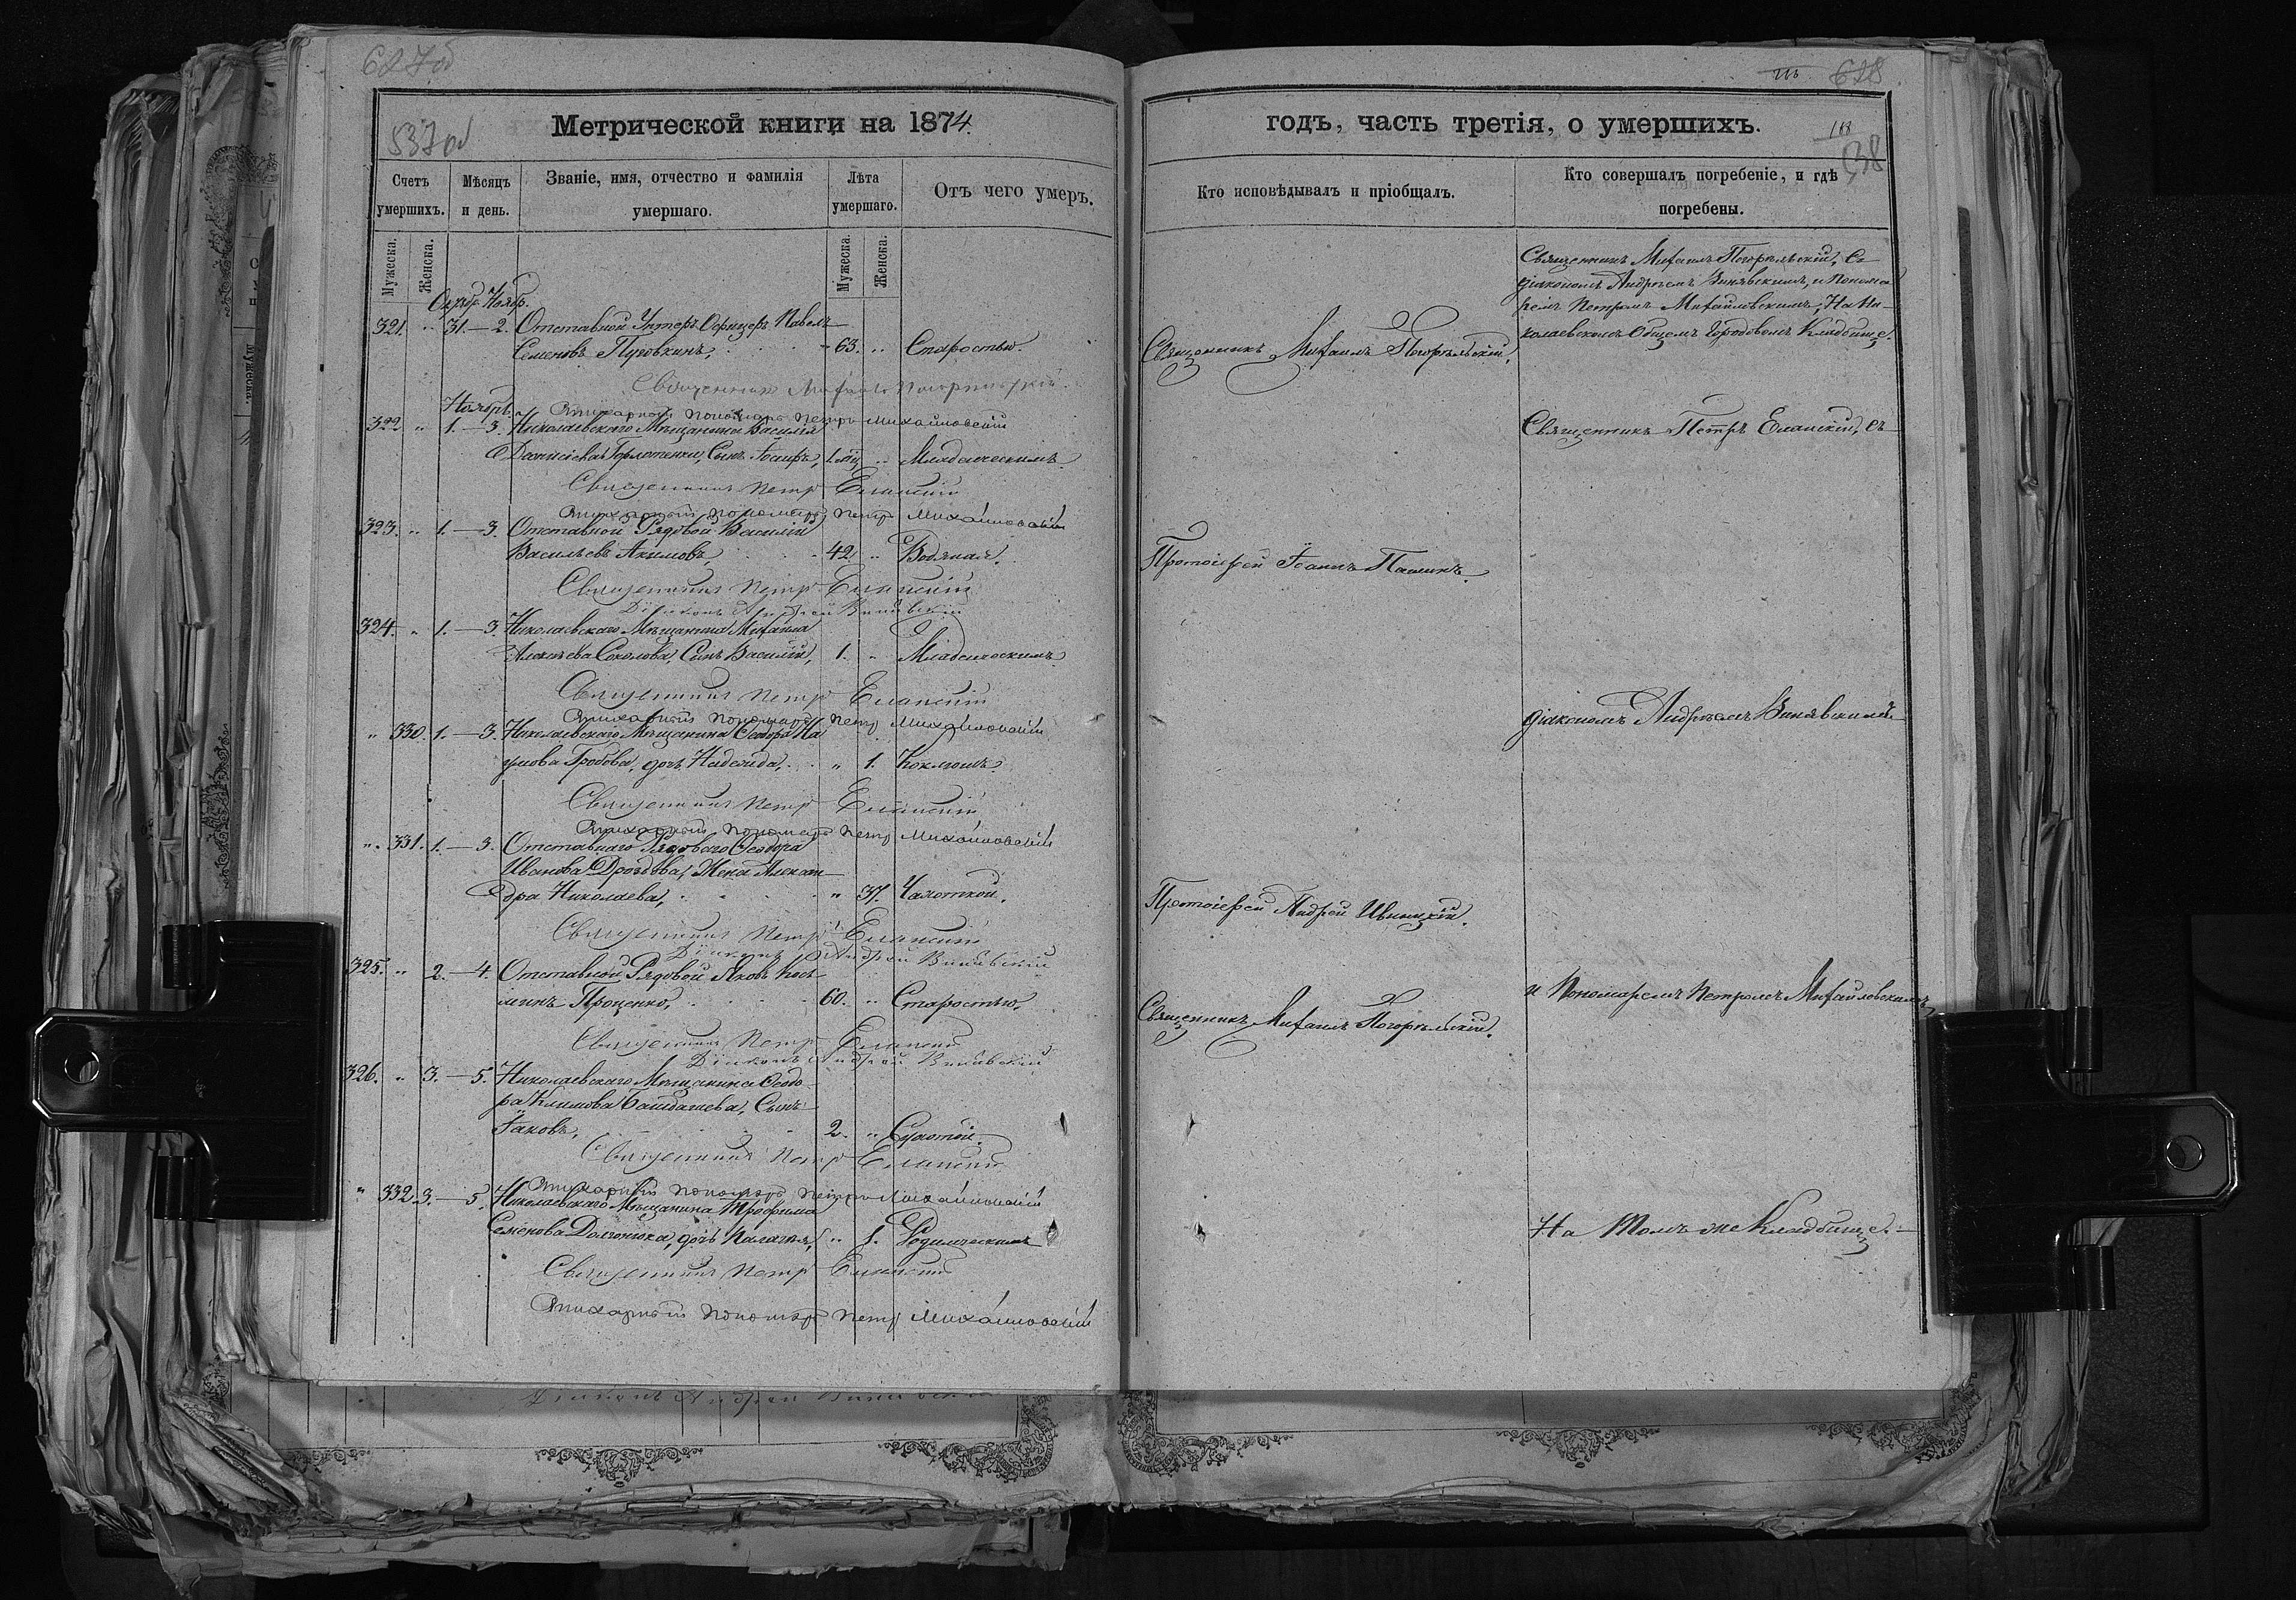 627об
537об
Метрической книги на 1874.
Счетъ умершихъ.
Мѣсяцъ и день.
Званіе, имя, отчество и фамилія умершаго.
Лѣта умершаго.
Отъ чего умеръ.
Мужеска.
Женска.
Мужеска.
Женска.
Октбр. Ноябр.
321. " 31.—2. Отставной Унтеръ Офицеръ Павелъ
Семеновъ Пуговкинъ, 63. " Старостью.
Священникъ Михаилъ Погорѣльскій
Ноябрь.
Стихарный пономарь Петръ Михайловскій
322. " 1.—3. Николаевскаго Мѣщанина Василія
Горлотенки, Сынъ Іосифъ, " Младенческимъ.
Священникъ Петр Еланскій
Стихарный пономарь Петр Михайловскій
323. " 1.—3. Отставной Рядовой Василій
Васильевъ Акимовъ, 42. " Водяная.
Священникъ Петр Еланскій
Діаконъ Андрей Винявскій
324. " 1.—3. Николаевскаго Мѣщанина Михаила
Алексѣева Соколова, Сынъ Василій, 1. " Младенческимъ.
Священникъ Петр Еланскій
Стихарный пономарь Петр Михайловскій
" 330. 1.—3. Николаевскаго Мѣщанина Ѳеодора На
умова Гробова, дочь Надежда, " 1. Коклюшъ.
Священникъ Петр Еланскій
Стихарный пономарь Петр Михайловскій
" 331. 1.—3. Отставнаго Рядоваго Ѳеодора
Иванова Дроздова, Жена Алексан-
дра Николаева, " 37. Чахоткой.
Священникъ Петр Еланскій
Діаконъ Андрей Винявскій
325. " 2.—4. Отставной Рядовой Яковъ Кось-
минъ Проценко, 60. " Старостью.
Священникъ Петр Еланскій
Діаконъ Андрей Винявскій
326. " 3.—5. Николаевскаго Мѣщанина Ѳеодо-
ра Климова Сынъ
Іаковъ, 2. " Сухотой.
Священникъ Петр Еланскій
Стихарный пономарь Петръ Михайловскій
" 332. 3.—5. Николаевскаго Мѣщанина Трофима
Семенова дочь Палагія, " 1. Родимческимъ
Священникъ Петр Еланскій
Стихарный пономарь Петр Михайловскій
Діаконъ Андрей Винявскій
628
годъ, часть третія, о умершихъ.
Кто исповѣдывалъ и пріобщалъ.
Кто совершалъ погребеніе, и гдѣ погребены.
Священникъ Михаилъ Погорѣльскій, съ
діакономъ Андреемъ Винявскимъ, и Понома
ремъ Петромъ Михайловскимъ, На Ни-
колаевскомъ Общемъ Городовомъ Кладбищѣ.
Священникъ Михаилъ Погорѣльскій.
Священникъ Петръ Еланскій, съ
Протоіерей Іоаннъ
діакономъ Андреемъ Винявскимъ
Протоіерей Андрей
и Пономаремъ Петромъ Михайловскимъ
Священникъ Михаилъ Погорѣльскій.
На томъ же Кладбищѣ.